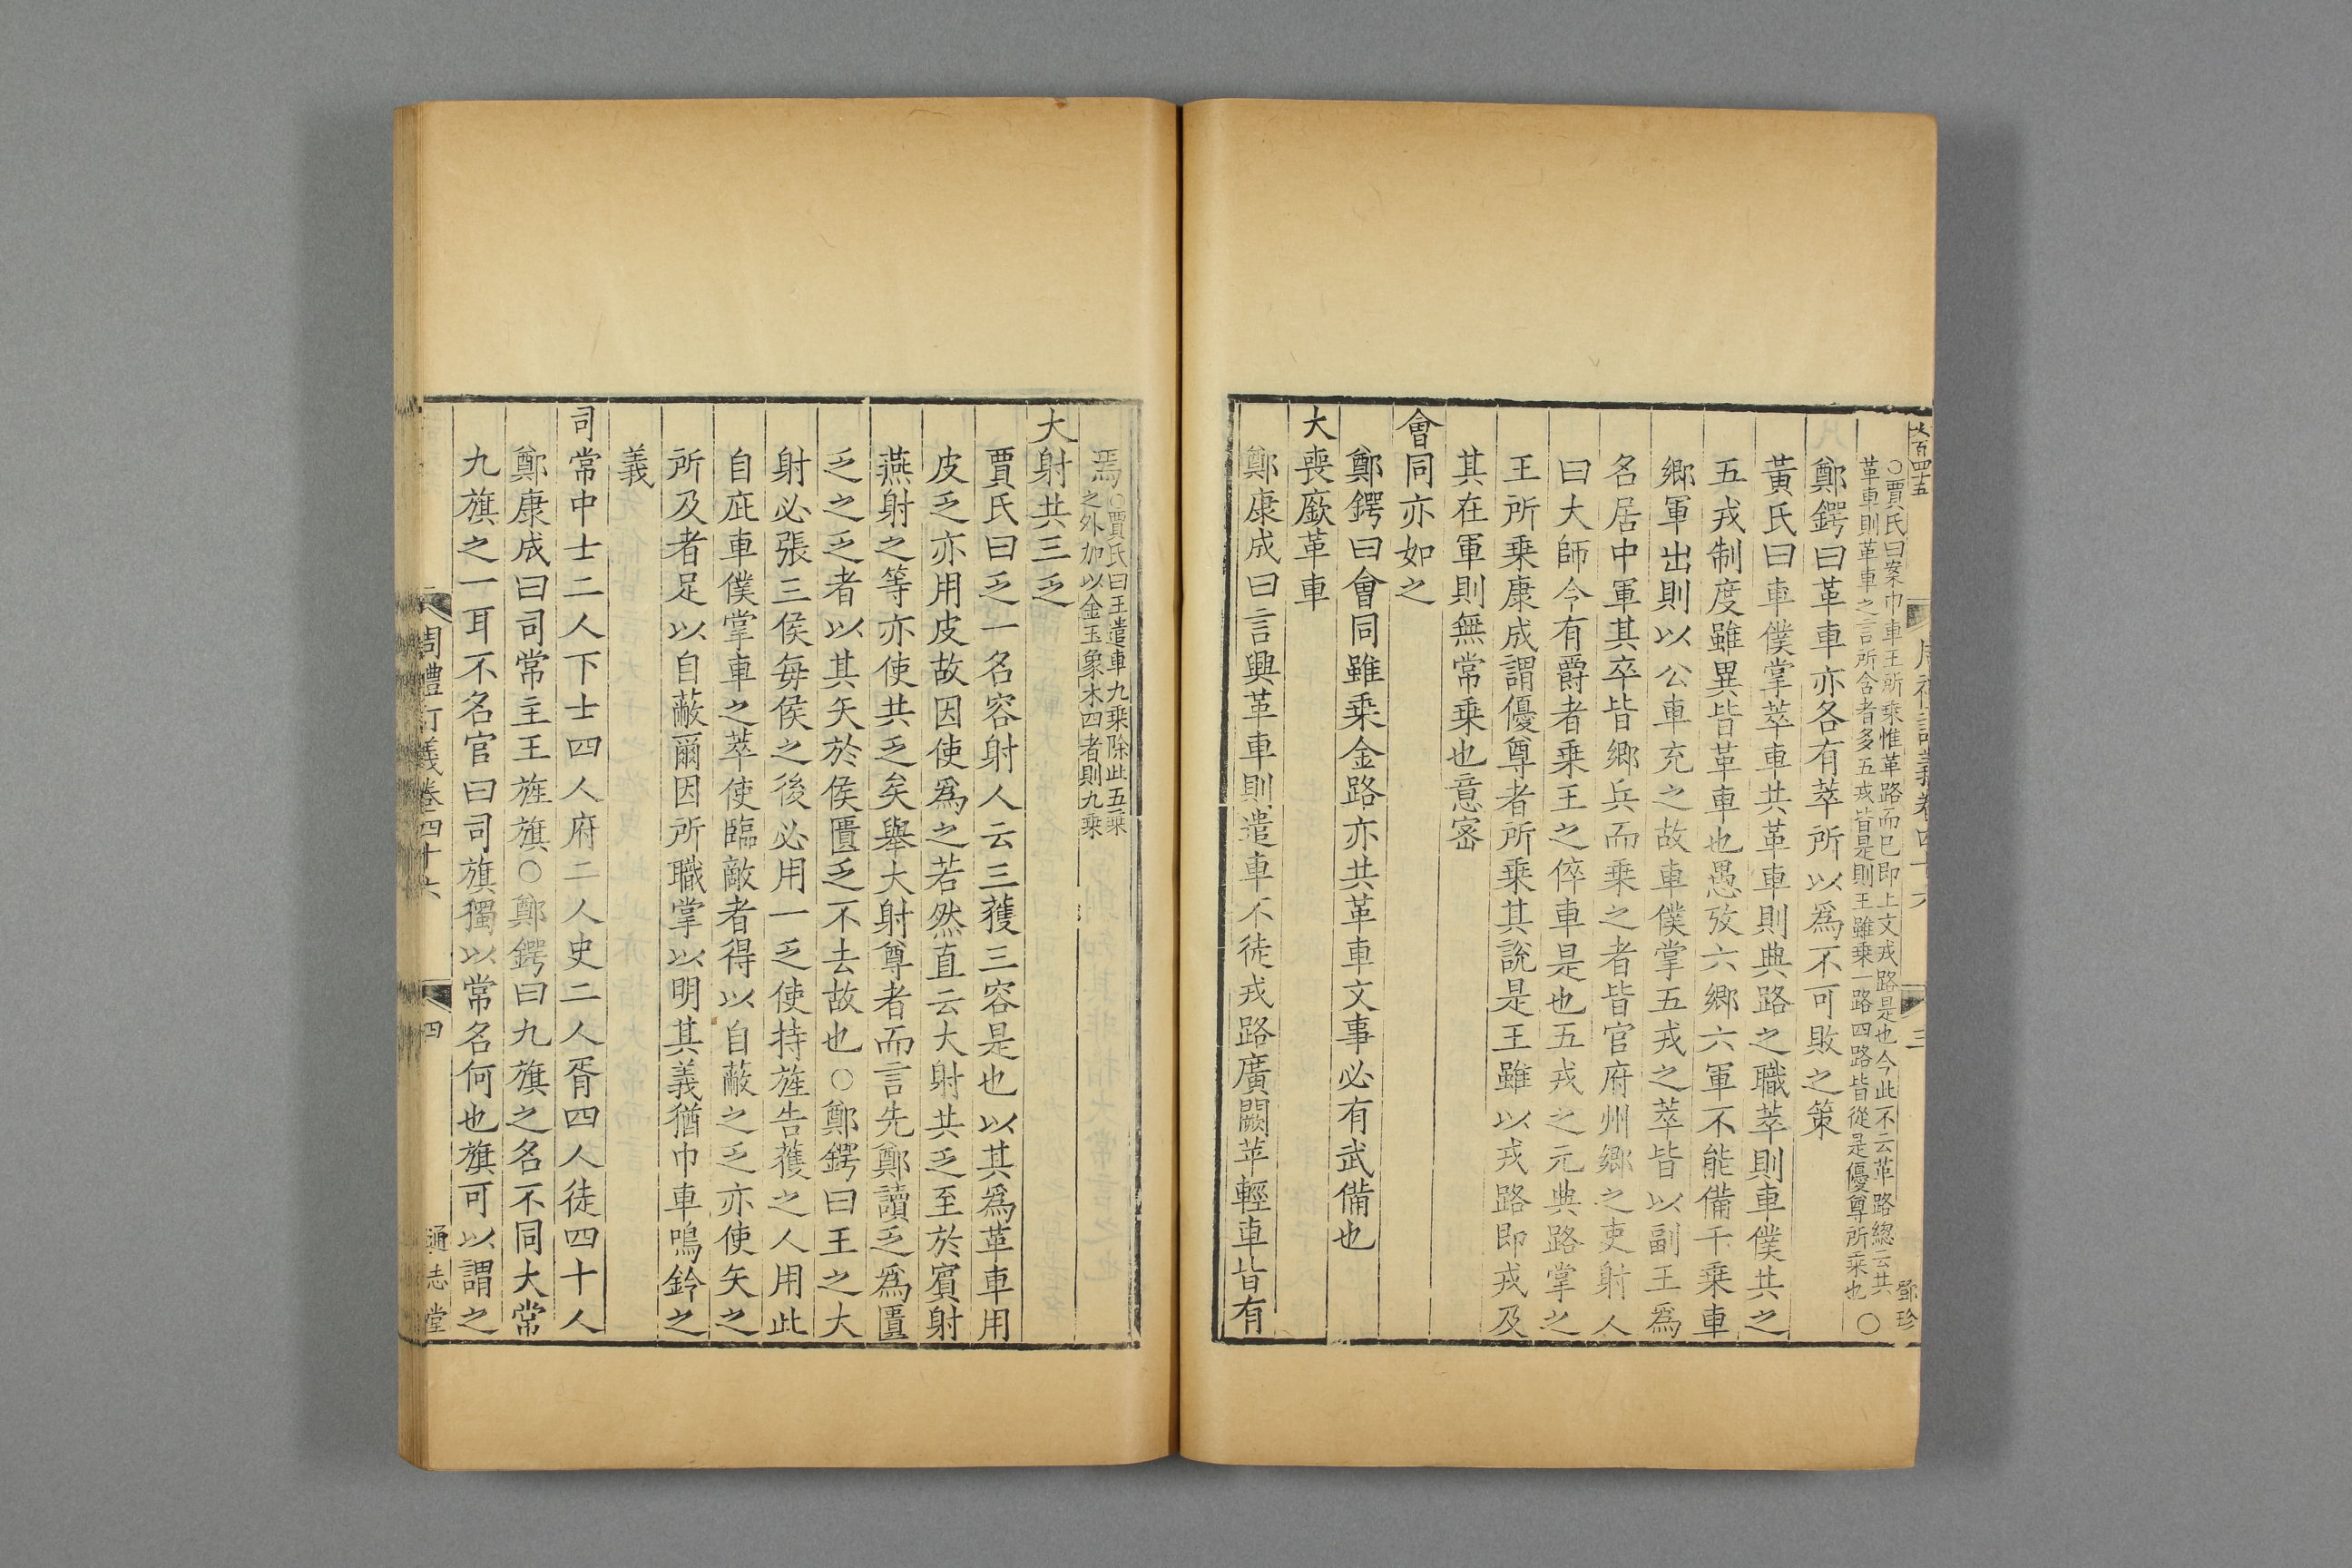 百四十五
三
鄧珍
○賈氏曰案巾車王所乘惟革路而已即上文戎路是也今此不云革路總云共
革車則革車之言所含者多五戎皆是則王雖乘一路四路皆從是優尊所乘也○
鄭鍔曰革車亦各有萃所以爲不可敗之策
黃氏曰車僕掌萃車共革車則典路之職萃則車僕共之
五戎制度雖異皆革車也愚攷六鄉六軍不能備千乘車
鄉軍出則以公車充之故車僕掌五戎之萃皆以副王爲
名居中軍其卒皆鄉兵而乘之者皆官府州鄉之吏射人
曰大師令有爵者乘王之倅車是也五戎之元典路掌之
王所乘康成謂優尊者所乘其說是王雖以戎路即戎及
其在軍則無常乘也意宻
會同亦如之
鄭鍔曰會同雖乘金路亦共革車文事必有武備也
大喪廞革車
鄭康成曰言興革車則遣車不徒戎路廣闕苹輕車皆有
焉○賈氏曰王遣車九乘除此五乘
之外加以金玉象木四者則九乘
大射共三乏
賈氏曰乏一名容射人云三獲三容是也以其爲革車用
皮乏亦用皮故因使爲之若然直云大射共乏至於賓射
燕射之等亦使共乏矣舉大射尊者而言先鄭讀乏爲匱
乏之乏者以其矢於侯匱乏不去故也○鄭鍔曰王之大
射必張三侯每侯之後必用一乏使持旌告獲之人用此
自庇車僕掌車之萃使臨敵者得以自蔽之乏亦使矢之
所及者足以自蔽爾因所職掌以明其義猶巾車鳴鈴之
義
司常中士二人下士四人府二人史二人胥四人徒四十人
鄭康成曰司常主王旌旗○鄭鍔曰九旗之名不同大常
九旗之一耳不名官曰司旗獨以常名何也旗可以謂之
周禮訂義卷四十六
四
通志堂